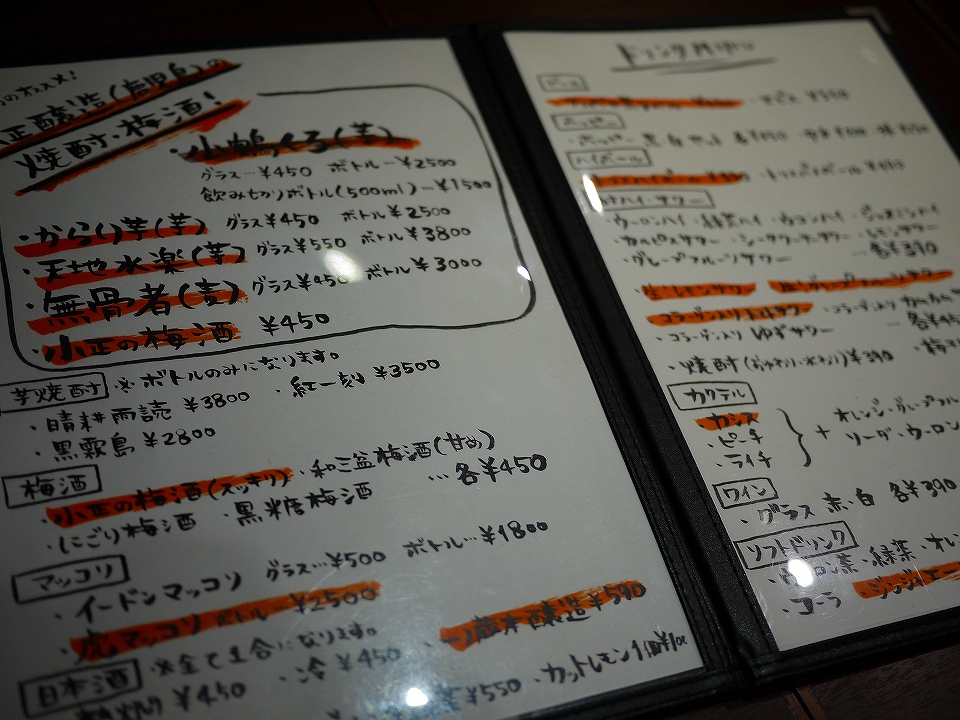 のオススメ!
小正醸造(鹿児島)の
焼酎・梅酒!
・小鶴くろ(芋)
グラス…¥450 ボトル…¥2500
飲み切りボトル(500ml)…¥1500
・からり芋(芋) グラス¥450 ボトル¥2500
・天地水楽(芋) グラス¥550 ボトル¥3800
・無骨者(麦) グラス¥450 ボトル¥3000
・小正の梅酒 ¥450
芋焼酎 ※ボトルのみになります。
・晴耕雨読 ¥3800 ・紅一刻 ¥3500
・黒霧島 ¥2800
梅酒
・小正の梅酒(スッキリ) ・和三盆梅酒(甘め)
・にごり梅酒 ・黒糖梅酒 …各¥450
マッコリ
・イードンマッコリ グラス…¥500 ボトル…¥1800
・虎マッコリ ボトル…¥2500
日本酒 ※全て1合になります。
・冷 ¥450 ¥590
¥450 ¥550 カットレモン1個¥100
ドリンクメニュー
ビール
ホッピー
・ホッピー 黒 白 セット
ハイボール
チューハイ・サワー
・ウーロンハイ ・緑茶ハイ ・ウコンハイ ・ジャスミンハイ
・カルピスサワー ・シークワーサーサワー ・レモンサワー
・グレープフルーツサワー …各¥390
・生レモンサワー ・生グレープフルーツサワー
・コラーゲン入り ・コラーゲン入り
・コラーゲン入り ゆずサワー …各¥45
・焼酎(お湯わり・水わり)¥390
カクテル
・カシス
・ピーチ
・ライチ
+ オレンジ・グレープフル
ソーダ・ウーロン
ワイン
・グラス 赤・白 各¥390
ソフトドリンク
・ウーロン茶 ・緑茶 ・オレン
・コーラ ・ジンジャエー